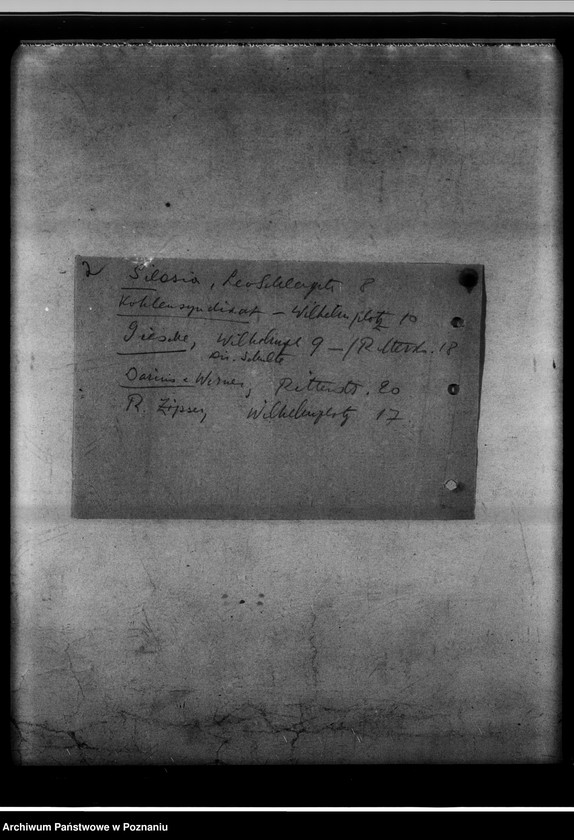 2
Silesia, Leo Schlageterstr. 8
Kohlensyndikat – Wilhelmplatz 10
Giesche, Wilhelmpl 9 – /Ritterstr. 18
Dir. Schulte
Darius & Werner, Ritterstr. 20
R. Zipser, Wilhelmplatz 17
Archiwum Państwowe w Poznaniu